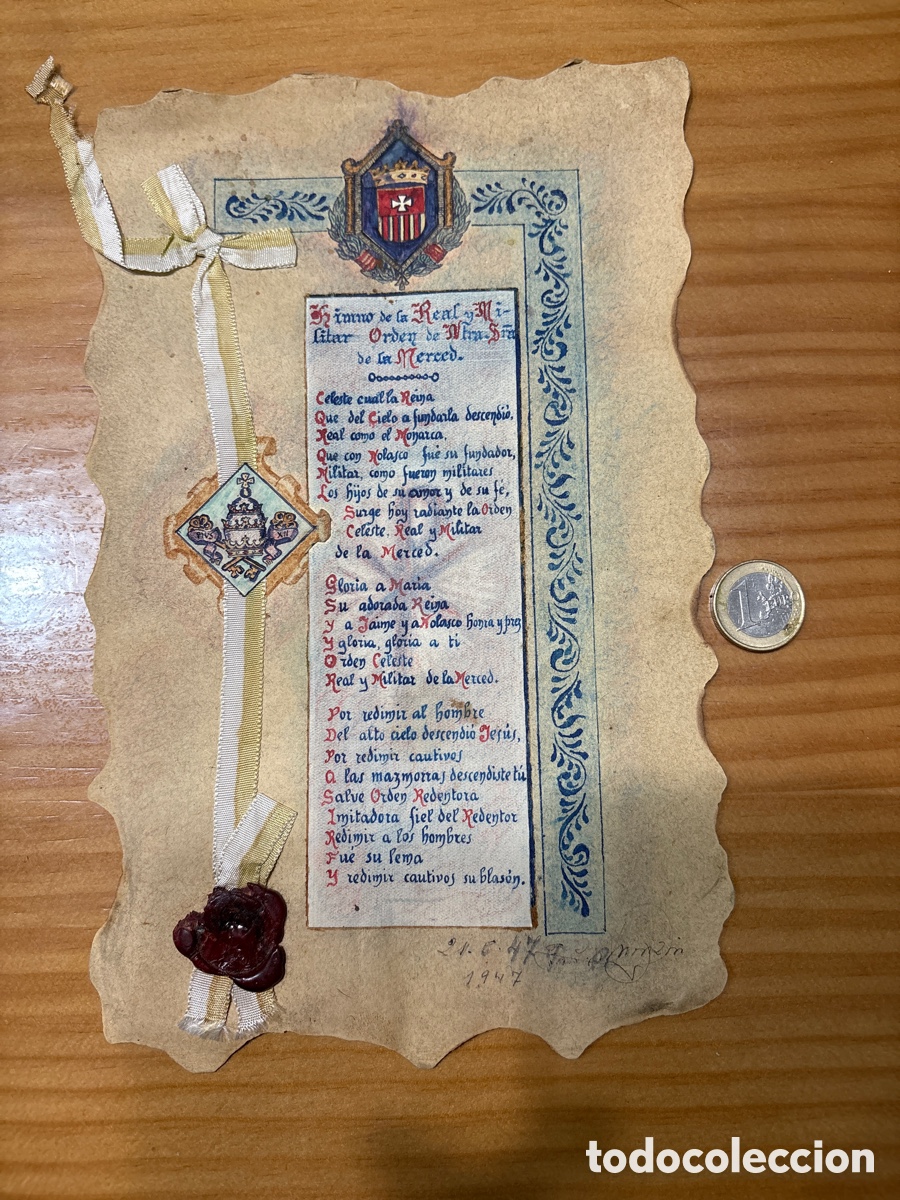 Himno de la Real y Mi-
litar Orden de Ntra. Sra
de la Merced.
Celeste cual la Reina
Que del Cielo a fundarla descendió,
Real como el Monarca,
Que con Nolasco fué su fundador,
Militar, como fueron militares
Los hijos de su amor y de su fé,
Surge hoy radiante la Orden
Celeste, Real y Militar
de la Merced.
Gloria a Maria
Su adorada Reina
y a Jaime y a Nolasco honra y prez
Y gloria, gloria a ti
Orden Celeste
Real y Militar de la Merced.
Por redimir al hombre
Del alto cielo descendió Jesús,
Por redimir cautivos
a las mazmorras descendiste tú
Salve Orden Redentora
Imitadora fiel del Redentor
Redimir a los hombres
Fué su lema
Y redimir cautivos su blasón.
PIVS XII
47
1947
1
todocoleccion